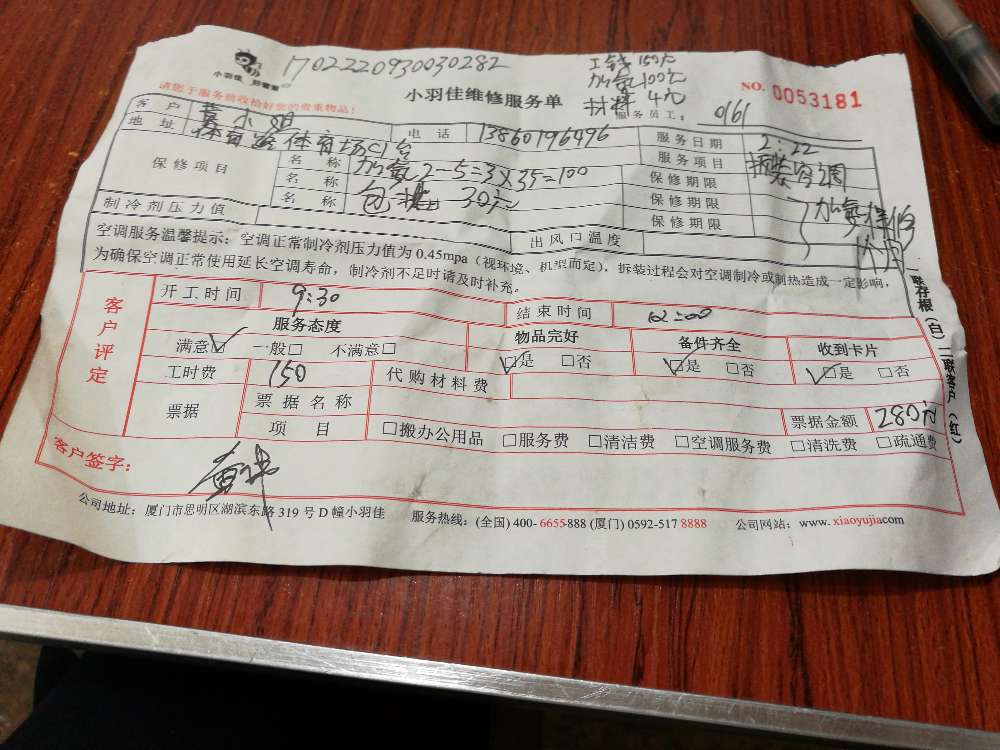 小羽佳 好管家
1702220930030282
工钱150元
加氧100元
材料 4元
请您于服务前收拾好您的贵重物品!
小羽佳维修服务单
NO. 0053181
服务员工: 0161
客户 黄小姐 电话 13860196496 服务日期 2:22
地址 体育路体育场 服务项目 拆装空调
保修项目 名称 加氧2-5=3X35=100 保修期限
名称 包 30元 保修期限
名称 保修期限
制冷剂压力值 出风口温度
空调服务温馨提示:空调正常制冷剂压力值为 0.45mpa(视环境、机型而定),拆装过程会对空调制冷或制热造成一定影响,
为确保空调正常使用延长空调寿命,制冷剂不足时请及时补充。
客户评定
开工时间 9:30 结束时间
服务态度 物品完好 备件齐全 收到卡片
满意☑ 一般□ 不满意□ ☑是 □否 ☑是 □否 ☑是 □否
工时费 150 代购材料费
票据 票据名称 票据金额 280元
项目 □搬办公用品 □服务费 □清洁费 □空调服务费 □清洗费 □疏通费
客户签字:
一联存根(白)二联客户(红)
公司地址:厦门市思明区湖滨东路 319 号 D 幢小羽佳 服务热线:(全国) 400- 6655-888 (厦门) 0592-517 8888 公司网站:www. xiaoyujia.com